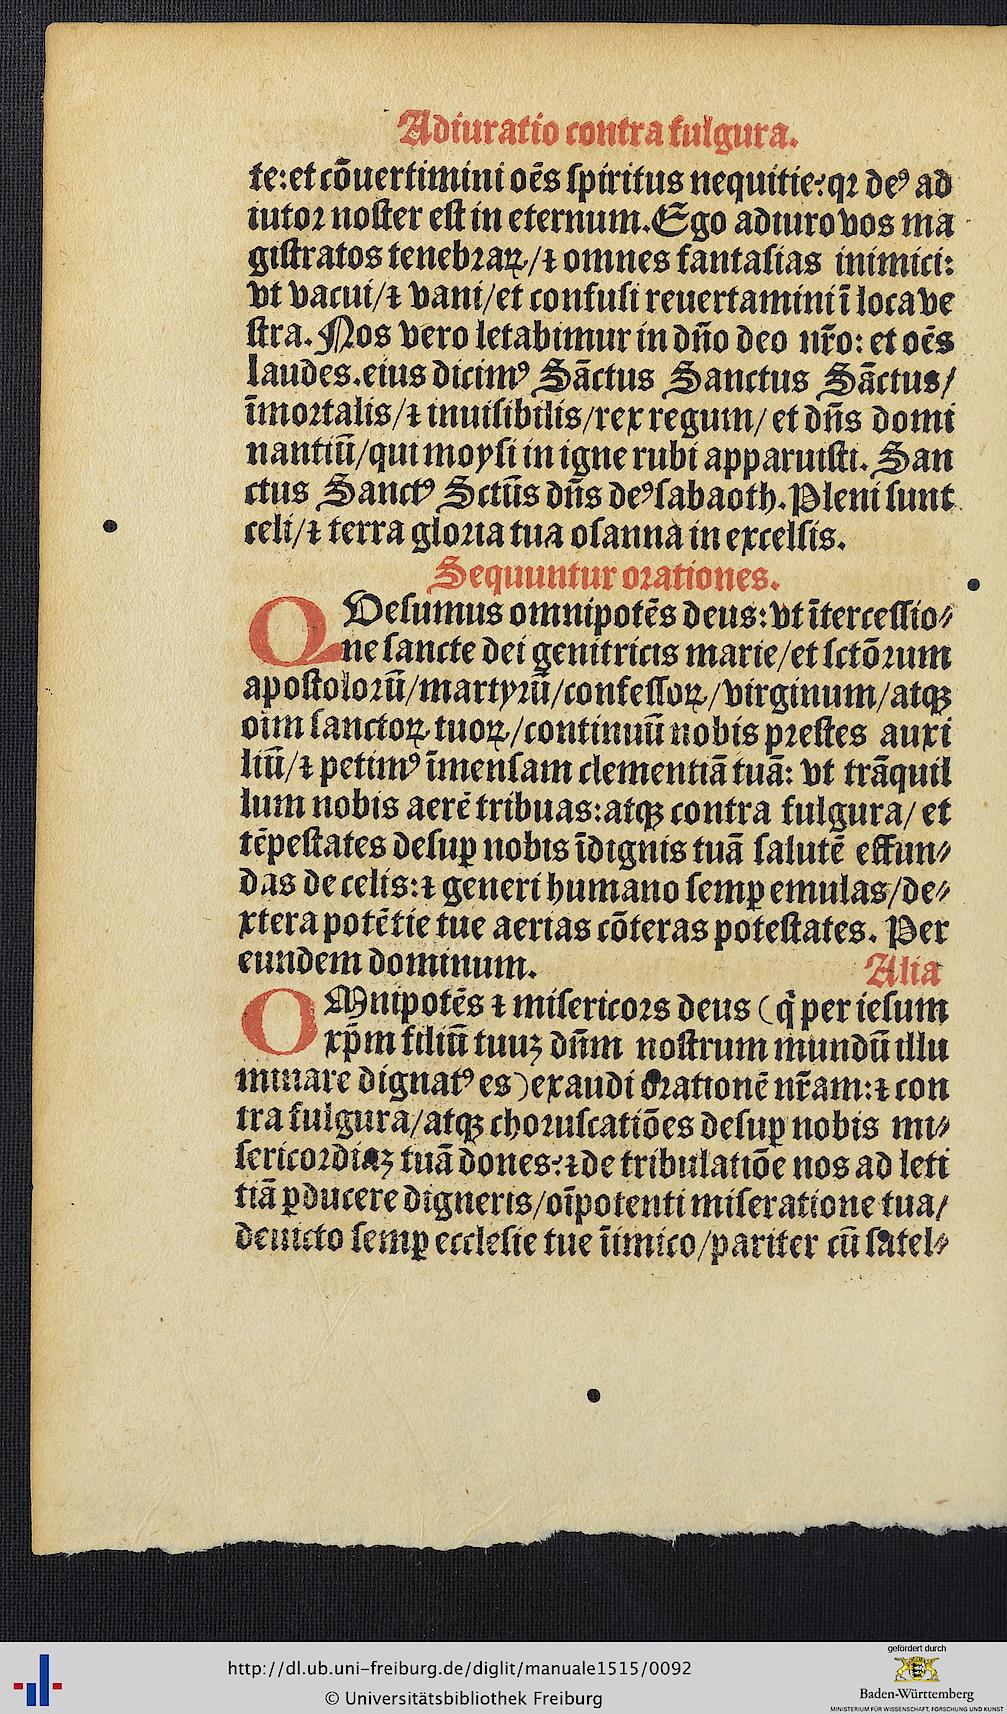 Adiuratio contra fulgura.
te: et cōuertimini oēs spiritus nequitie: qꝛ deꝰ ad
iutoꝛ noster est in eternum. Ego adiuro vos ma
gistratos tenebꝛaꝝ/⁊ omnes fantasias inimici:
vt vacui/⁊ vani/et confusi reuertamini ī loca ve
stra. Nos vero letabimur in dn̄o deo nr̄o: et oēs
laudes. eius dicimꝰ Sāctus Sanctus Sāctus/
īmoꝛtalis/⁊ inuisibilis/rex regum/ et dn̄s domi
nantiū/qui moysi in igne rubi apparuisti. San
ctus Sanctꝰ Sctūs dn̄s deꝰ sabaoth. Pleni sunt
celi/⁊ terra gloꝛia tua osanna in excelsis.
Sequuntur oꝛationes.
QVesumus omnipotēs deus: vt ītercessio⸗
ne sancte dei genitricis marie/et sctōꝛum
apostoloꝛū/martyꝛū/confessoꝝ/virginum/atqꝫ
oīm sanctoꝝ tuoꝝ/continuū nobis pꝛestes auxi
liū/⁊ petimꝰ īmensam clementiā tuā: vt trāquil
lum nobis aerē tribuas: atqꝫ contra fulgura/ et
tēpestates desuꝑ nobis īdignis tuā salutē effun⸗
das de celis: ⁊ generi humano semꝑ emulas/de⸗
xtera potētie tue aerias cōteras potestates. Per
eundem dominum.
Alia
OMnipotēs ⁊ misericoꝛs deus (q̄ per iesum
xp̄m filiū tuuꝫ dn̄m nostrum mundū illu
minare dignatꝰ es) exaudi oꝛationē nr̄am: ⁊ con
tra fulgura/atqꝫ choꝛuscatiōes desuꝑ nobis mi⸗
sericoꝛdiaꝫ tuā dones: ⁊ de tribulatiōe nos ad leti
tiā ꝑducere digneris/oīpotenti miseratione tua/
deuicto semꝑ ecclesie tue īimico/pariter cū satel⸗
http://dl.ub.uni-freiburg.de/diglit/manuale1515/0092
© Universitätsbibliothek Freiburg
gefördert durch
Baden-Württemberg
MINISTERIUM FÜR WISSENSCHAFT, FORSCHUNG UND KUNST